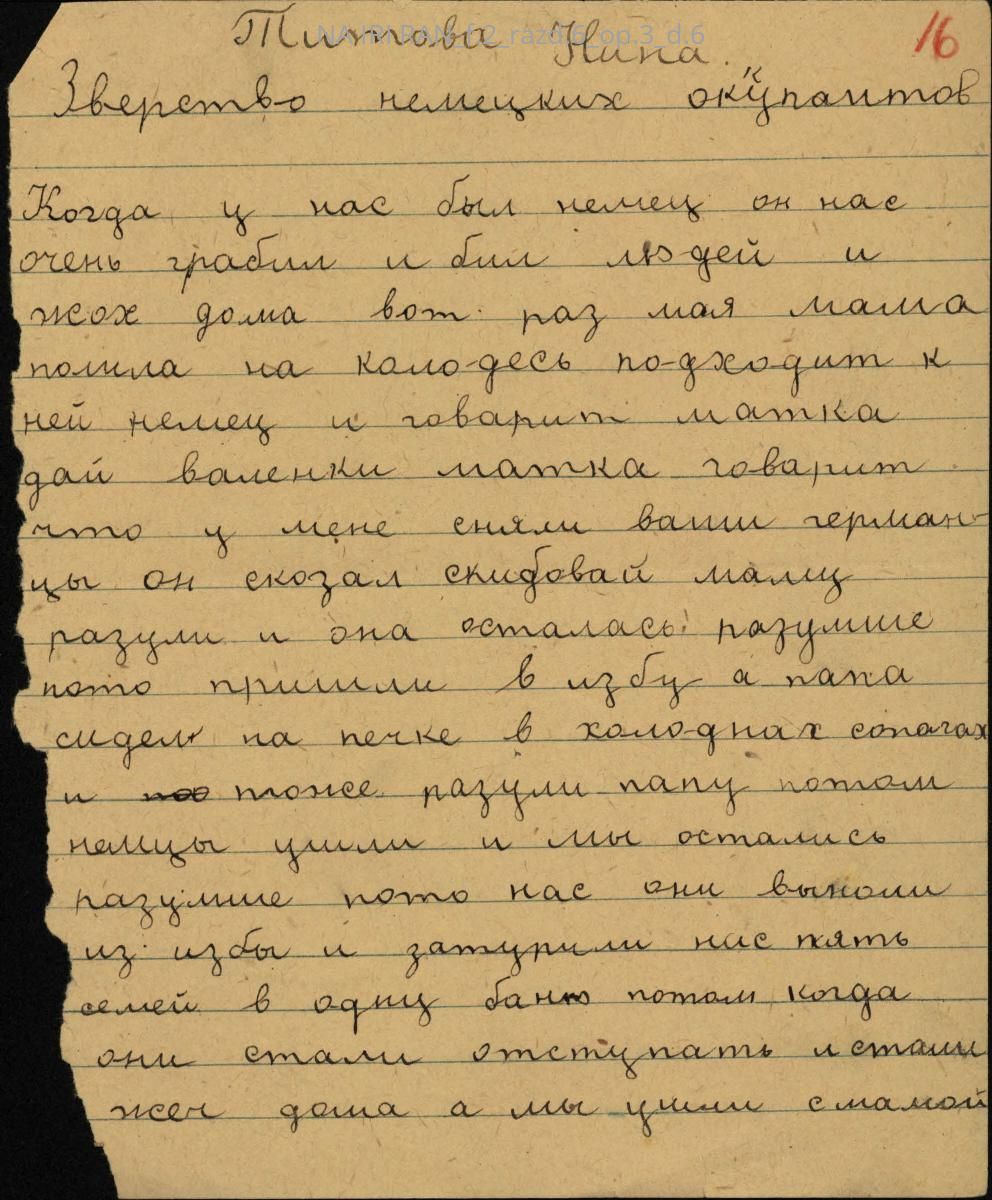 Титова Нина.
16
NA IRI RAN_f.2_razd.6_op.3_d.6
Зверство немецких окупантов
к
Когда у нас был немец он нас
очень грабил и бил людей и
жох дома вот раз мая мама
пошла на колодесь подходит к
ней немец и говарит матка
дай валенки матка говарит
что у мене сняли ваши герман-
цы он скозал скидовай маму
разули и она осталась разумше
пото пришли в избу а папа
сидел на печке в холоднах сопагах
и тоже разули папу потом
немцы ушли и мы остались
разумше пото нас они выноли
из избы и затурили нас пять
семей в одну баню потом когда
они стали отступать и стали
жеч дома а мы ушли с мамой